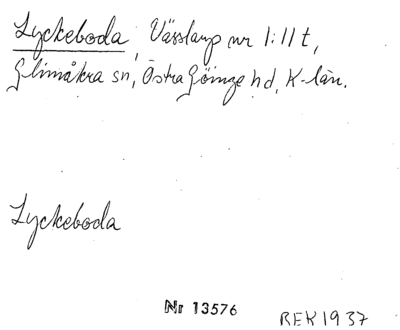 Lyckeboda, Vässlarp nr 1:11 t,
Glimåkra sn, Östra Göinge hd, K-län.
Lyckeboda
Nr 13576
BEK 1937